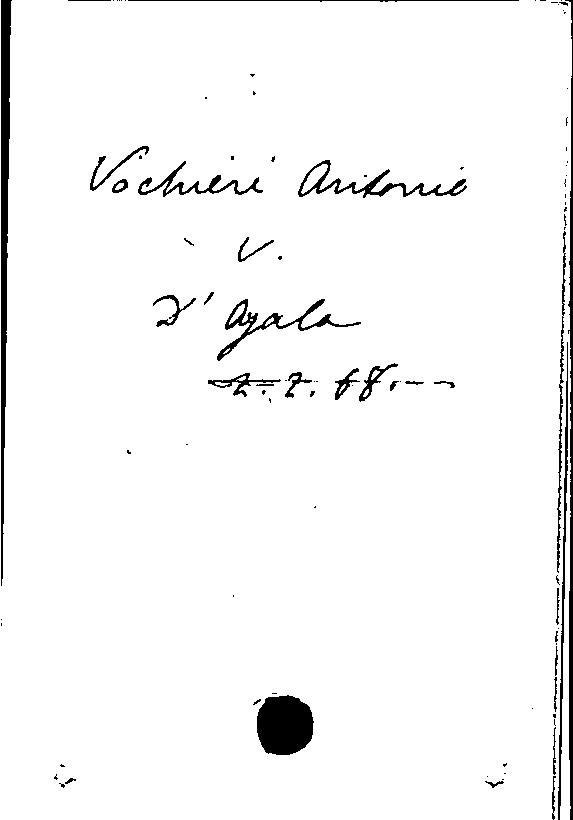 Vochieri Antonio
V.
D'Ayala